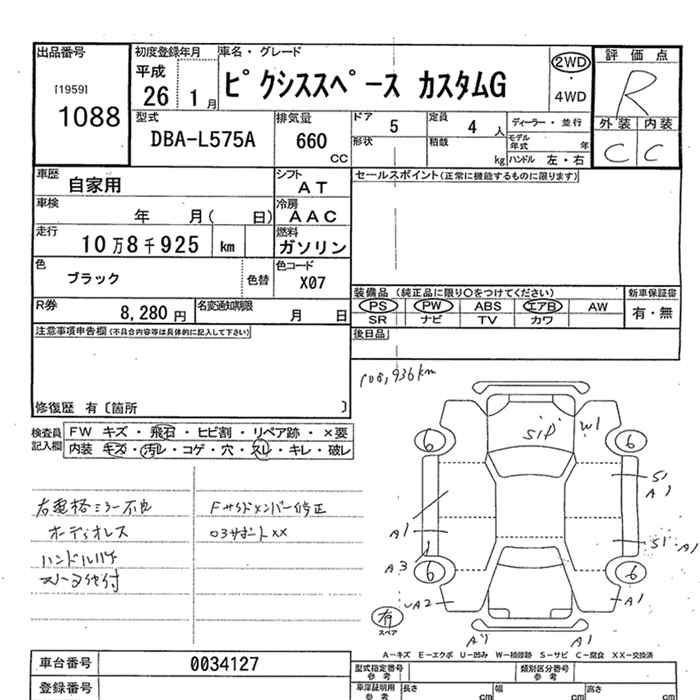 出品番号
[1959]
1088
初度登録年月
平成
26 1 月
車名・グレード
ピクシススペース カスタムG
2WD
4WD
評価点
R
外装 内装
C C
型式
DBA-L575A
排気量
660
CC
ドア 5
定員 4 人
ディーラー・並行
形状
積載
kg
モデル年式 年
ハンドル 左・右
車歴 自家用
シフト AT
セールスポイント(正常に機能するものに限ります)
車検 年 月( 日)
冷房 AAC
走行 10万8千925 km
燃料 ガソリン
色 ブラック 色替
色コード X07
装備品 (純正品に限り○をつけてください)
新車保証書
PS PW ABS エアB AW
有・無
SR ナビ TV カワ
R券 8,280 円
名変通知期限 月 日
後日品
注意事項申告欄(不具合内容等は具体的に記入して下さい)
108,936km
修復歴 有〔箇所 〕
検査員記入欄
FW キズ・飛石・ヒビ割・リペア跡・×要
内装 キズ・汚レ・コゲ・穴・スレ・キレ・破レ
右電格ミラー不良
Fサイドメンバー修正
オーディオレス
03サポートXX
ハンドルハゲ
S1P
W1
6
6
S1
A1
A1
S1
A1
A3
6
6
A2
A1
有
スペア
A1
A1
A-キズ E-エクボ U-凹み W-補修跡 S-サビ C-腐食 XX-交換済
車台番号 0034127
型式指定番号 参考
類別区分番号 参考
登録番号
車庫証明用 参考
長さ cm
幅 cm
高さ cm